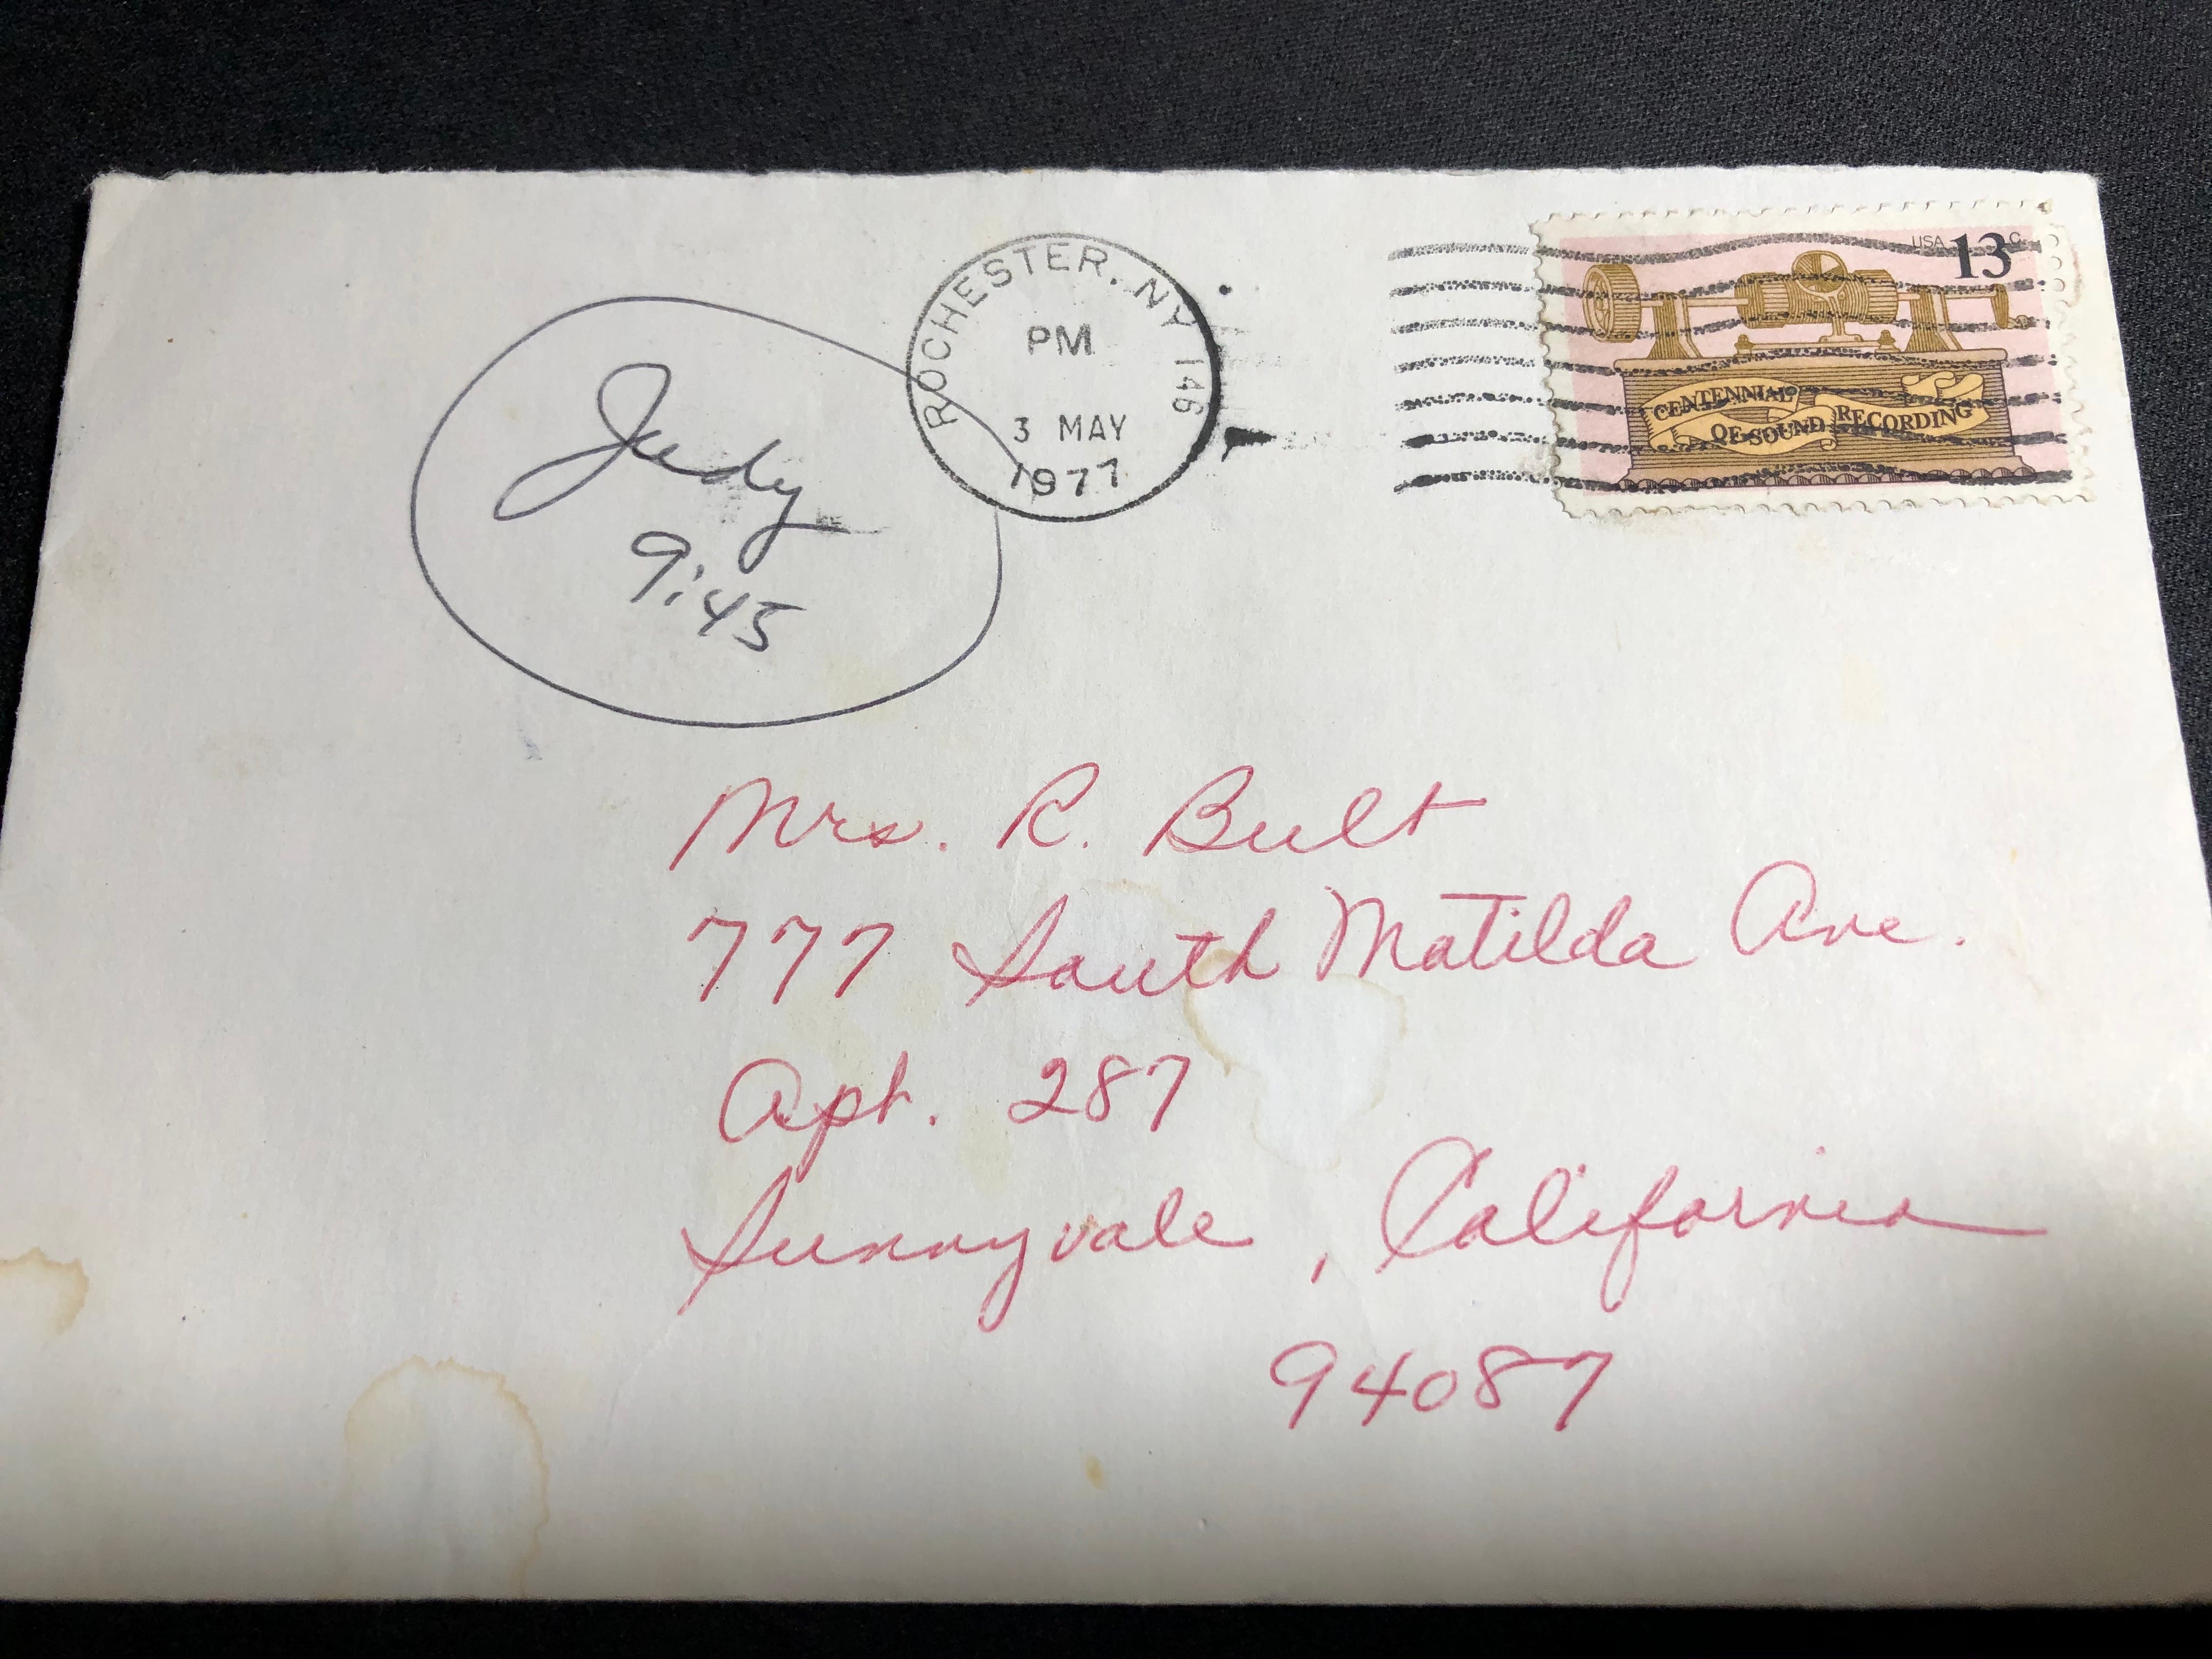 ROCHESTER, NY 146
PM
3 MAY
1977
USA 13c
CENTENNIAL
OF SOUND RECORDING
Judy
9:45
Mrs. R. Bult
777 South Matilda Ave.
Apt. 287
Sunnyvale, California
94087